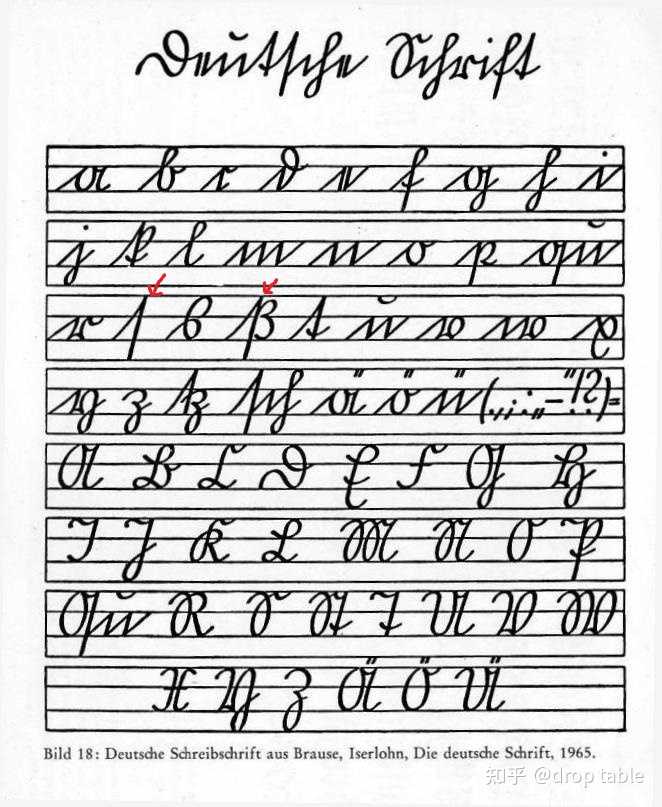 Deutsche Schrift
a b c d e f g h i
j k l m n o p qu
r ſ s ß t u v w x
y z tz ſch ä ö ü (.,;:„–"!?)=
A B C D E F G H
I J K L M N O P
Qu R S St T U V W
X Y Z Ä Ö Ü
Bild 18: Deutsche Schreibschrift aus Brause, Iserlohn, Die deutsche Schrift, 1965.
知乎 @drop table